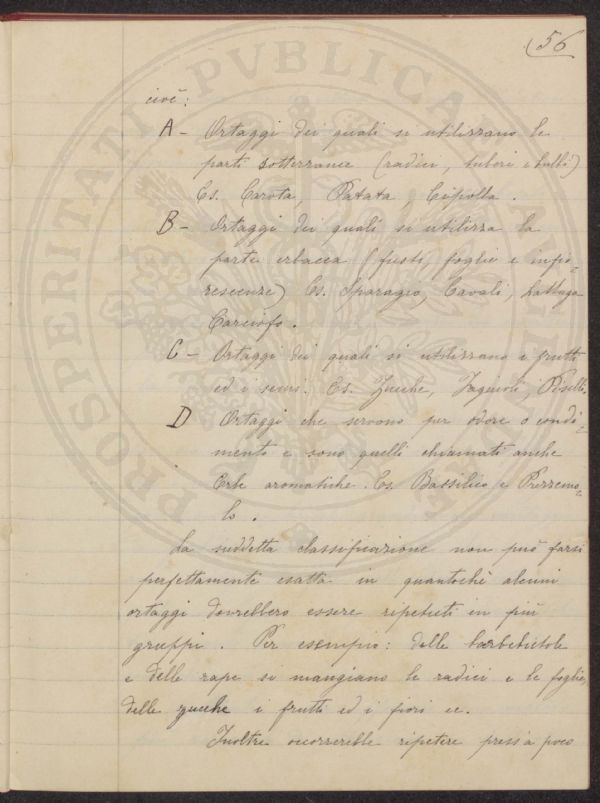 56
cioè:
A - Ortaggi dei quali si utilizzano le
parti sotterranee (radici, tuberi e bulbi)
Es. Carota, Patata, Cipolla.
B - Ortaggi dei quali si utilizza la
parte erbacea (fusti, foglie e inflo-
rescenze) Es. Sparagio, Cavoli, Lattuga
Carciofo.
C - Ortaggi dei quali si utilizzano i frutti
ed i semi. Es. Zucche, Fagiuoli, Piselli.
D Ortaggi che servono per odore o condi-
mento e sono quelli chiamati anche
Erbe aromatiche. Es Bassilico e Prezzemo-
lo.
La suddetta classificazione non può farsi
perfettamente esatta in quantochè alcuni
ortaggi dovrebbero essere ripetuti in più
gruppi. Per esempio: delle barbebietole
e delle rape si mangiano le radici e le foglie,
delle zucche i frutti ed i fiori ec.
Inoltre occorrerebbe ripetere press'a poco
PROSPERITATI PVBLICAE AVGENDAE